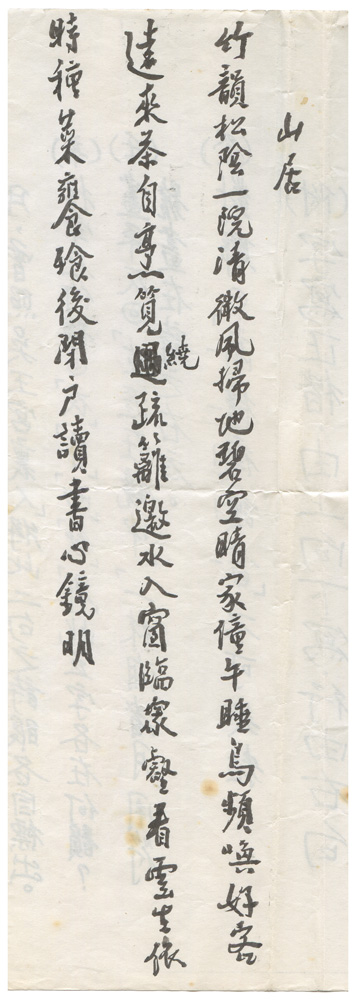 山居
竹韻松陰一院清微風掃地碧空晴家僮午睡鳥頻喚好客
遠來茶自烹筧繞疏籬邀水入窗臨眾壑看雲生依
時種菜饔飱後閉户讀書心鏡明